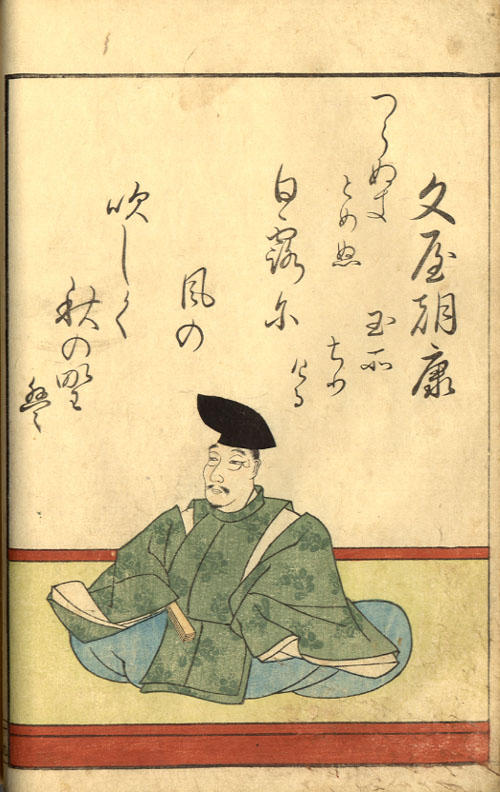 文屋朝康
白露尓
風の
吹しく
秋の野
は
つらぬき
とめぬ
玉そ
ちり
ける